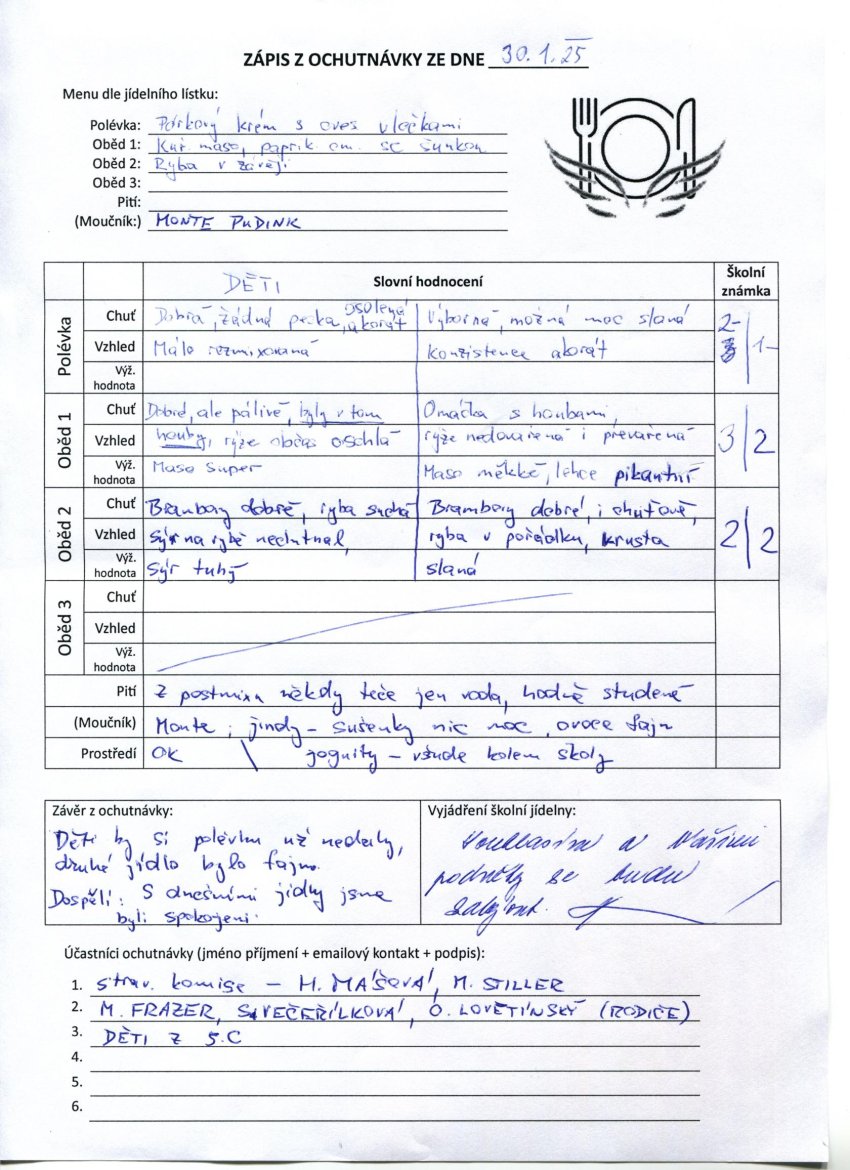 ZÁPIS Z OCHUTNÁVKY ZE DNE 30.1.25
Menu dle jídelního lístku:
Polévka: Pórkový krém s oves vločkami
Oběd 1: Kuř. maso, paprik. om. se šunkou
Oběd 2: Ryba v závěji
Oběd 3:
Pití:
(Moučník:) MONTE PUDINK
DĚTI Slovní hodnocení Školní známka
Polévka
Chuť Dobrá, žádná pecka, osolená akorát Výborná, možná moc slaná 2- 1-
Vzhled Málo rozmixovaná Konzistence akorát
Výž. hodnota
Oběd 1
Chuť Dobré, ale pálivé, byly v tom Omáčka s houbami, 3/2
Vzhled houby, rýže občas oschlá rýže nedovařená i převařená
Výž. hodnota Maso super Maso měkké, lehce pikantní
Oběd 2
Chuť Brambory dobré, ryba suchá Brambory dobré, i chuťově, 2/2
Vzhled Sýr na rybě nechutnal, ryba v pořádku, krusta
Výž. hodnota Sýr tuhý slaná
Oběd 3
Chuť
Vzhled
Výž. hodnota
Pití Z postmixu někdy teče jen voda, hodně studené
(Moučník) Monte; jindy – sušenky nic moc, ovoce fajn
Prostředí OK \ jogurty – všude kolem školy
Závěr z ochutnávky:
Děti by si polévku už nedaly,
druhé jídlo bylo fajn.
Dospělí: S dnešními jídly jsme
byli spokojeni.
Vyjádření školní jídelny:
Souhlasím a Vašimi
podněty se budu
zabývat.
Účastníci ochutnávky (jméno příjmení + emailový kontakt + podpis):
1. strav. komise – H. MÁŠOVÁ, M. STILLER
2. M. FRAZER, S. VEČEŘÍLKOVÁ, O. LOVĚTÍNSKÝ (RODIČE)
3. DĚTI Z 5.C
4.
5.
6.